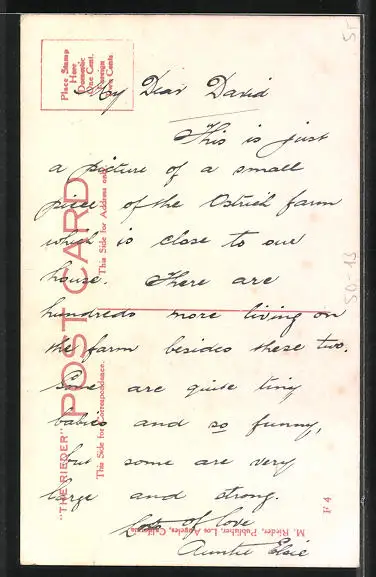 My Dear David
This is just
a picture of a small
piece of the Ostrich farm
which is close to our
house. There are
hundreds more living on
the farm besides these two.
Some are quite tiny
babies and so funny,
but some are very
large and strong.
Lots of love
Auntie Elsie
Place Stamp
Here
Domestic
One Cent.
Foreign
Two Cents.
POST CARD
This Side for Address only.
"THE RIEDER"
This Side for Correspondence.
M. Rieder, Publisher, Los Angeles, California
F 4
50-13